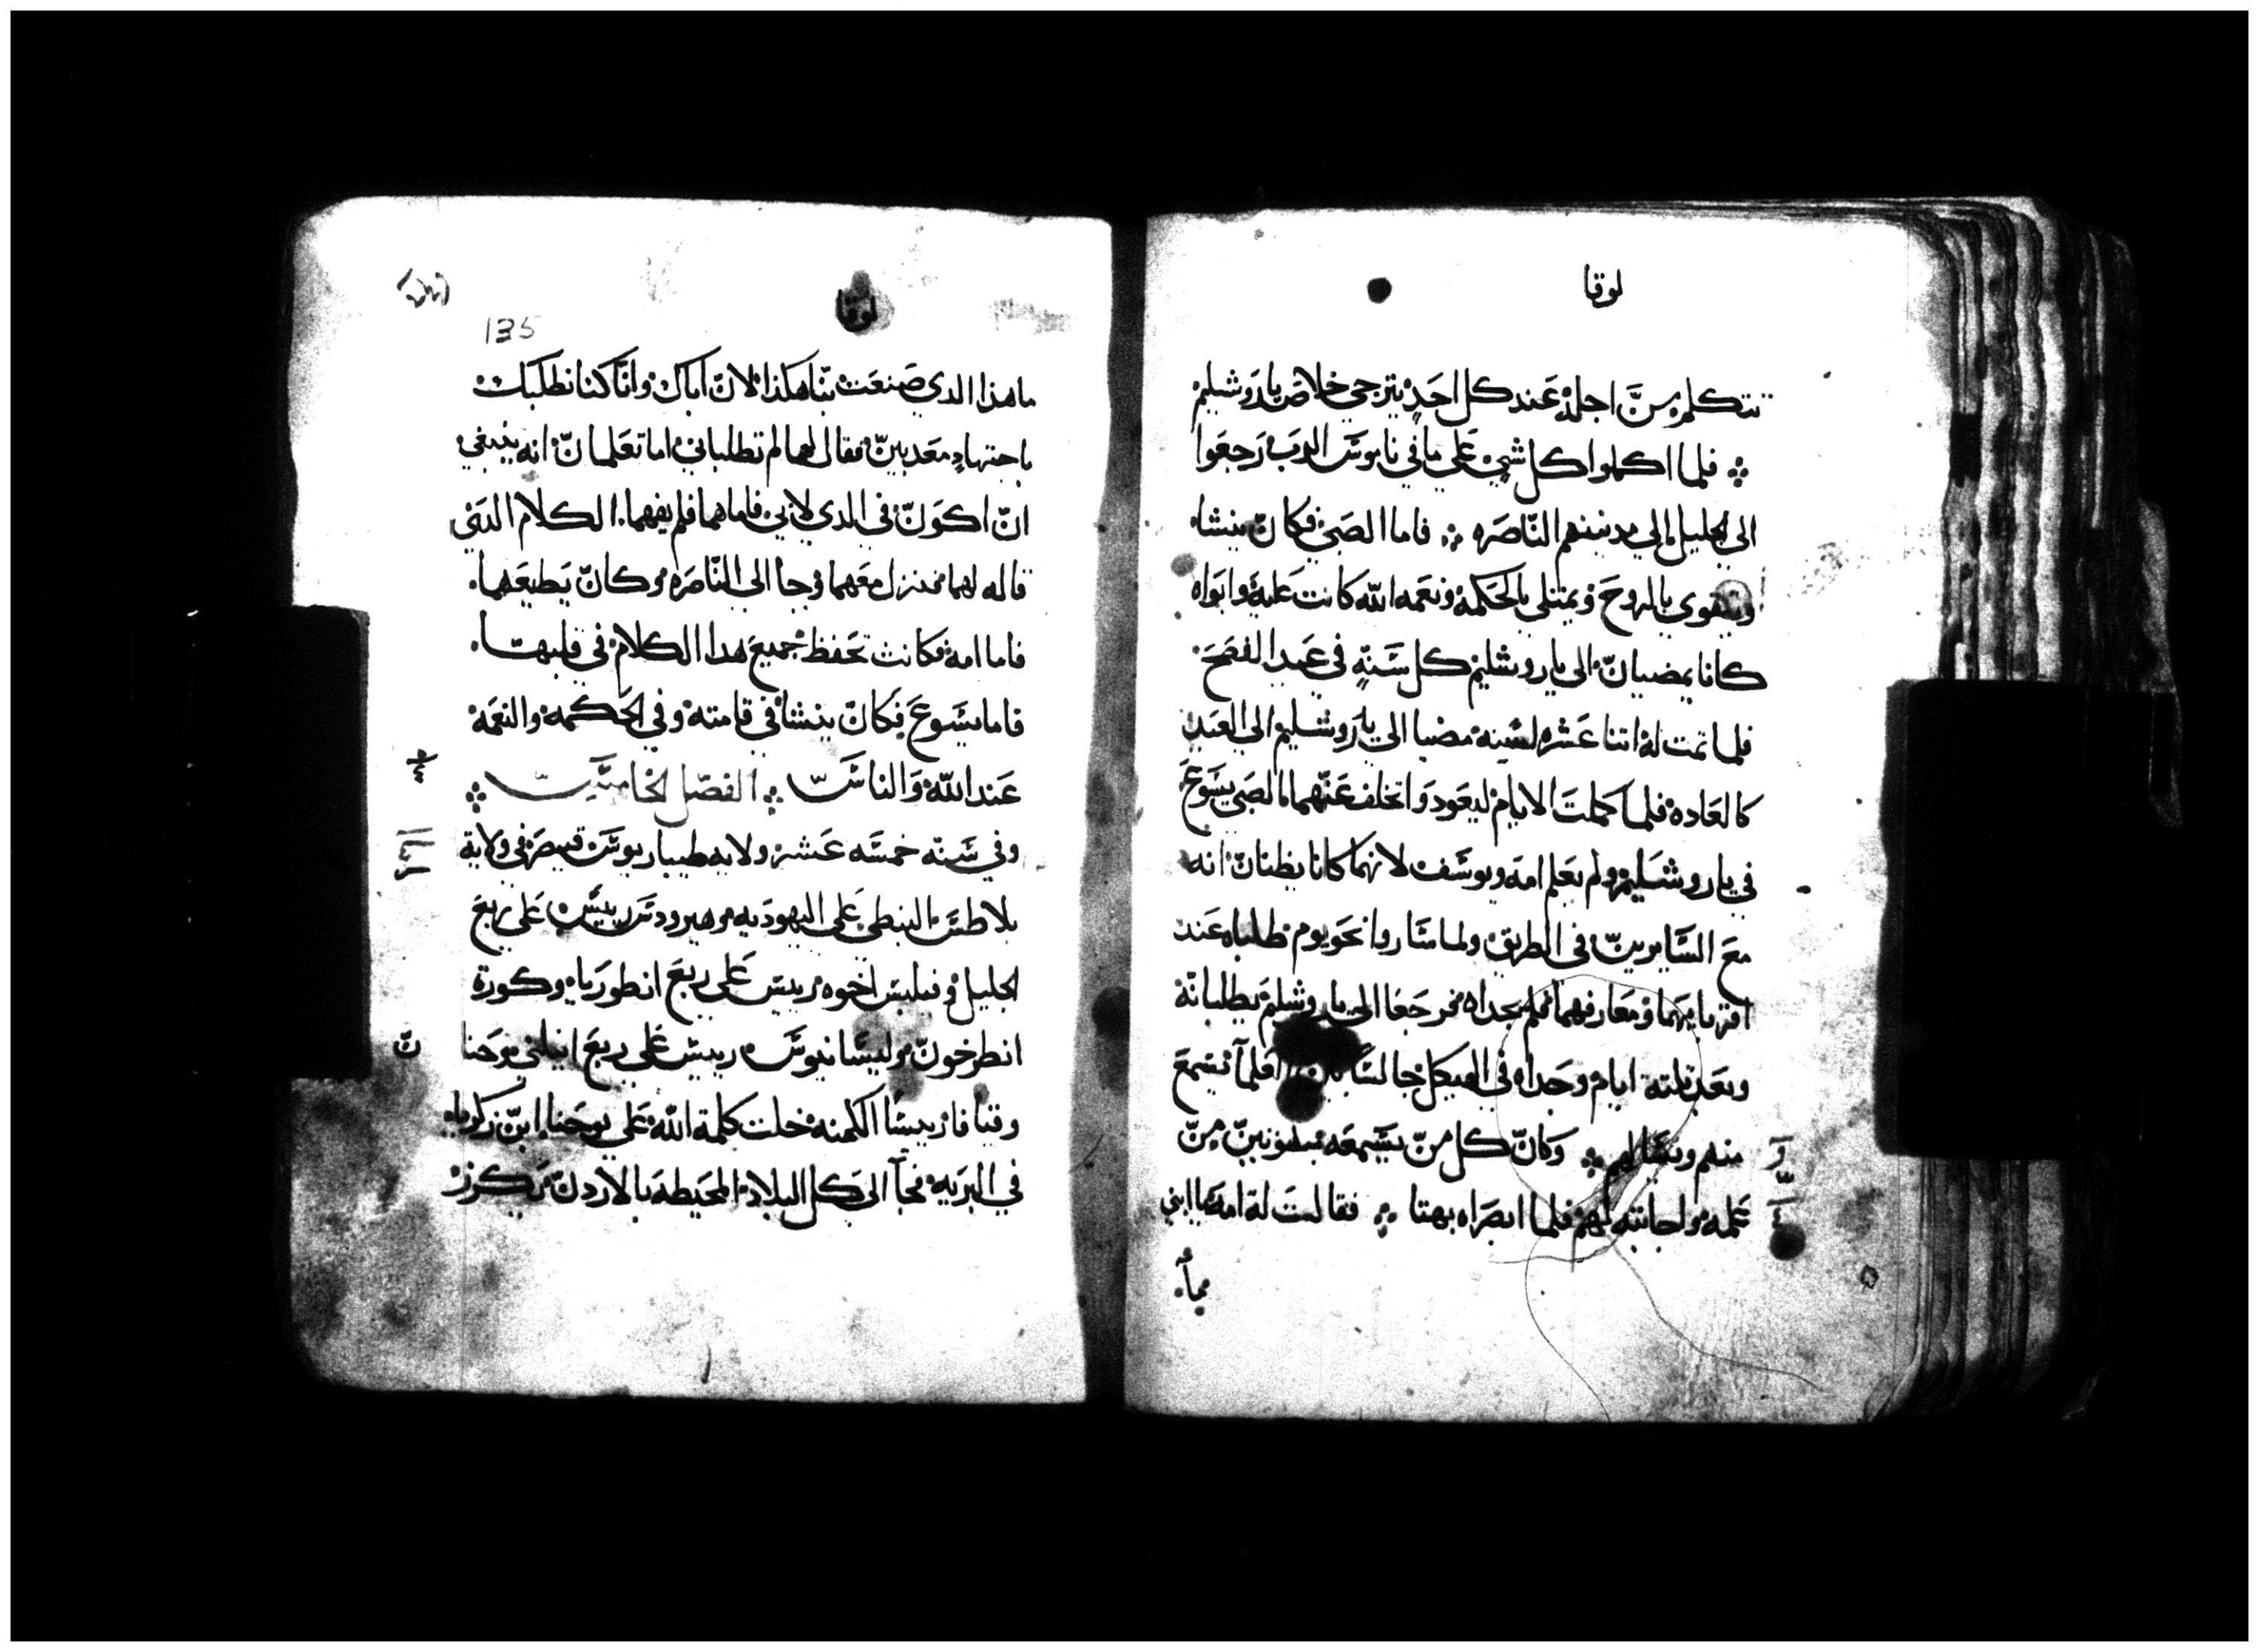 لوقا
تتكلم من اجله عند كل احد يترجي خلاص ياروشليم
فلما اكملوا كل شي على ما في ناموس الرب رجعوا
الى الجليل الى مدينتهم الناصره فاما الصبى فكان ينشا
ويتقوى بالروح ويمتلى بالحكمة ونعمه الله كانت عليه وابواه
كانا يمضيان الى ياروشليم كل سنة في عيد الفصح
فلما تمت له اتنا عشره لسنه مضيا الى ياروشليم الى العيد
كالعاده فلما كملت الايام ليعودوا تخلف عنهما الصبي يسوع
في ياروشليم ولم يعلم امه ويوسف لانهما كانا يظنان انه
مع السايرين في الطريق ولما ساروا نحو يوم طلباه عند
اقربايهما ومعارفهما فلم يجداه فرجعا الى ياروشليم يطلبانه
وبعد تلتة ايام وجداه في الهيكل جالسا يسمع
منهم ويسالهم وكان كل من يسمعه مبهوتين من
علمه واجابته لهم فلما ابصراه بهتا فقالت له امه يا ابني
لوقا
135
ما هذا الدي صنعت بنا هكذا لان اباك وانا كنا نطلبك
باجتهاد معدبين فقال لهما لم تطلباني اما تعلمان انه ينبغي
ان اكون في الدي لابي فاما هما فلم يفهما الكلام الدي
قاله لهما فنزل معهما وجا الى الناصره وكان يطيعهما
فاما امه فكانت تحفظ جميع هدا الكلام في قلبها
فاما يسوع فكان ينشا في قامته وفي الحكمه والنعمه
عند الله والناس الفصل الخامس
وفي سنة خمسه عشر ولايه طيباريوس قيصر في ولاية
بلاطس النبطى على اليهوديه وهيرودس رييس على ربع
الجليل وفيلبس اخوه رييس على ربع انطوريا وكورة
انطرخون ولیسانيوس رييس على ربع ابيلني وحنا
وقيافا رييسا الكهنه حلت كلمة الله على يوحنا ابن زكريا
في البريه فجا الى كل البلاد المحيطه بالاردن يكرز